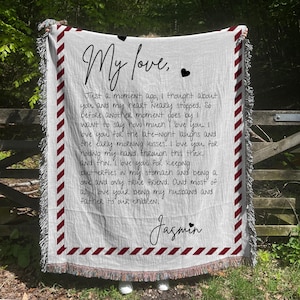 My love,
Just a moment ago, I thought about
you and my heart nearly stopped. So
before another moment goes by I
want to say how much I love you. I
love you for the late-night laughs and
the early morning kisses. I love you for
holding my hand through this thick
and thin. I love you for keeping
butterflies in my stomach and being a
one and only true friend. And most of
all, I love your being my husband and
father to our children.
Jasmin